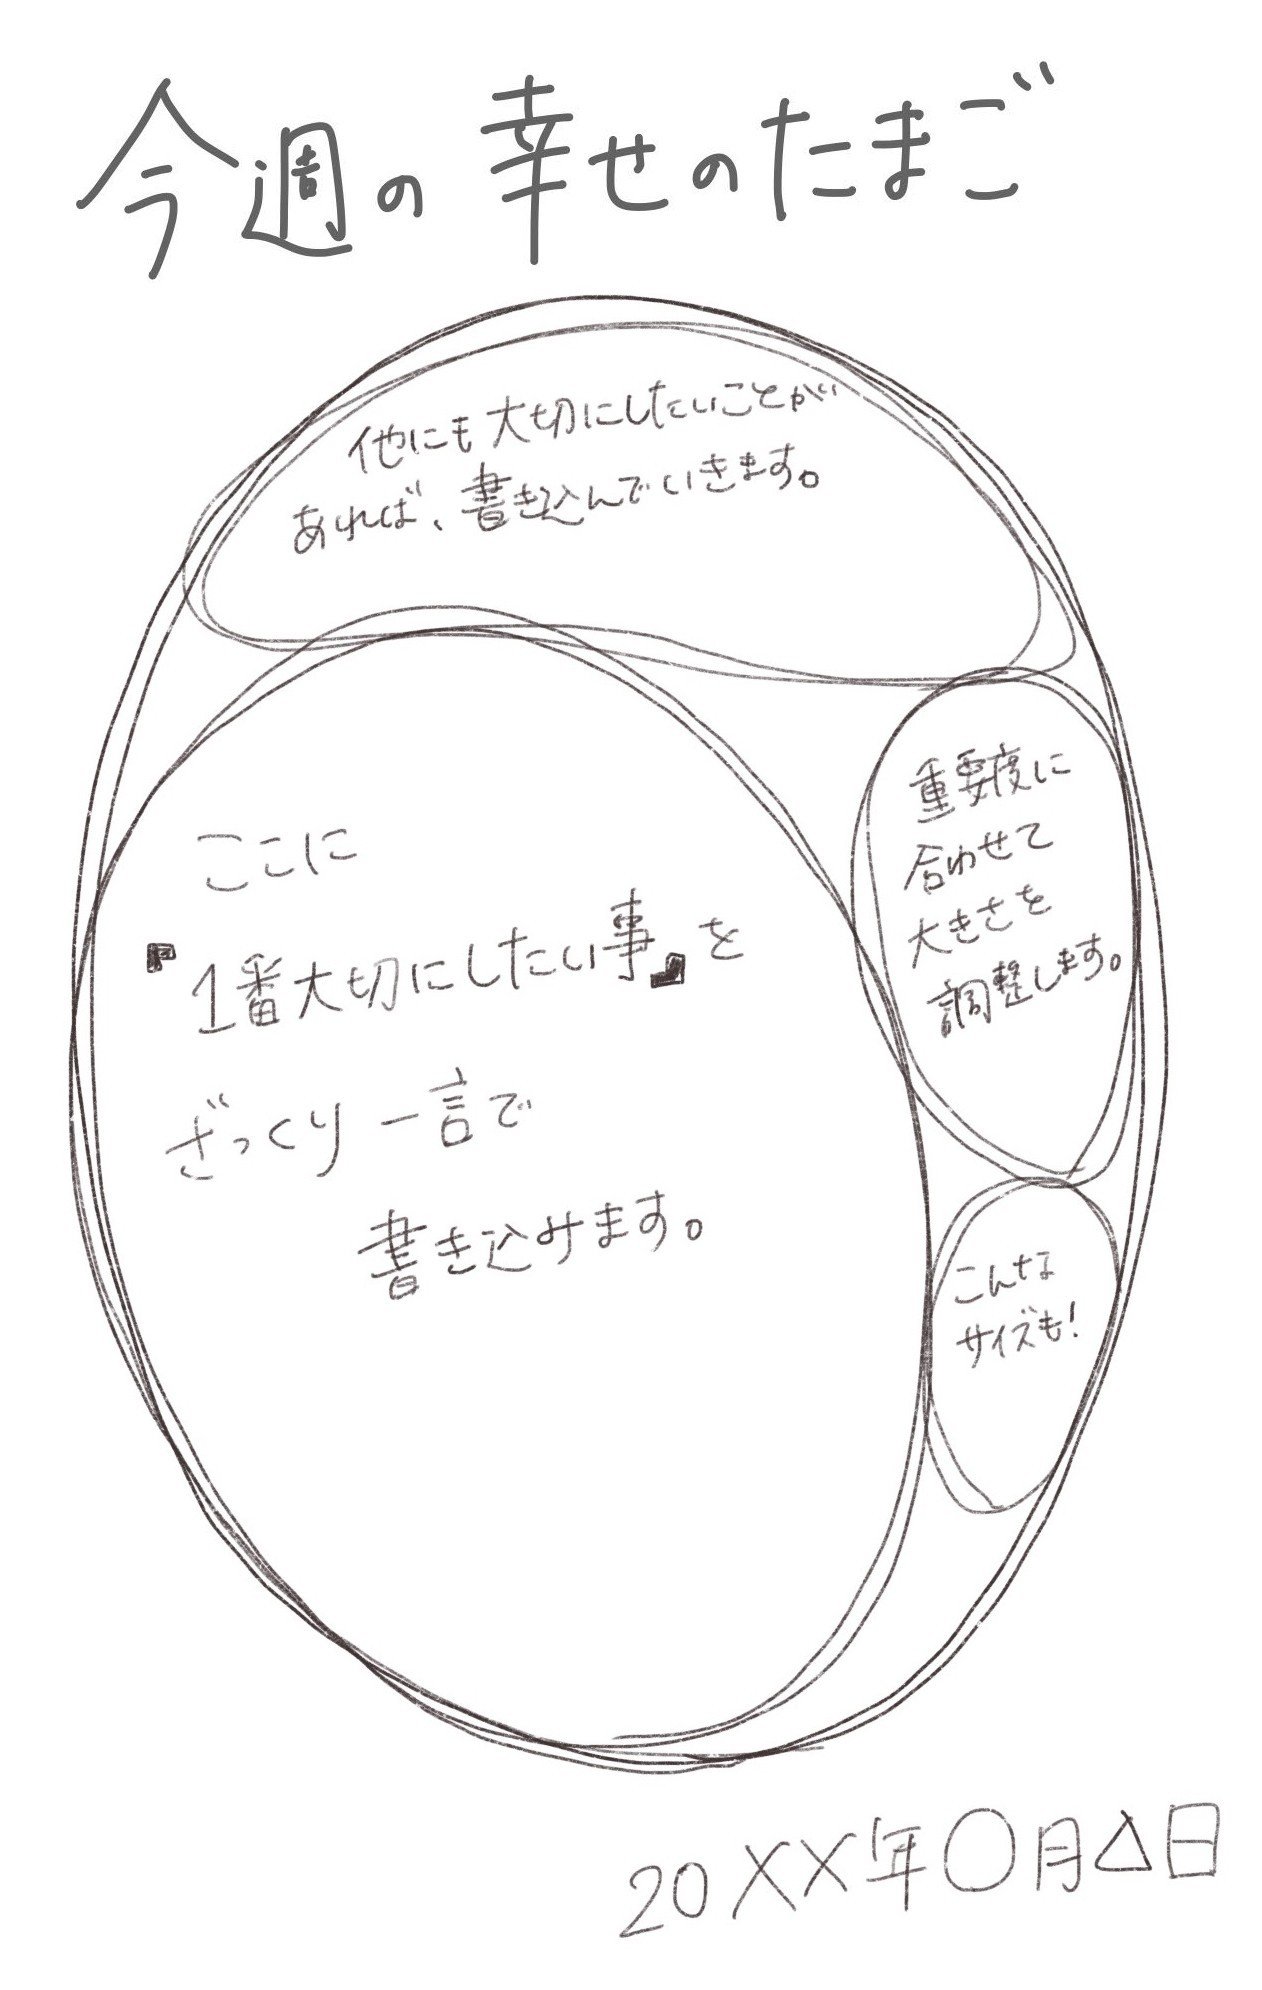 今週の幸せのたまご
他にも大切にしたいことが
あれば、書き込んでいきます。
重要度に
合わせて
大きさを
調整します。
ここに
『1番大切にしたい事』を
ざっくり一言で
書き込みます。
こんな
サイズも!
20XX年〇月△日